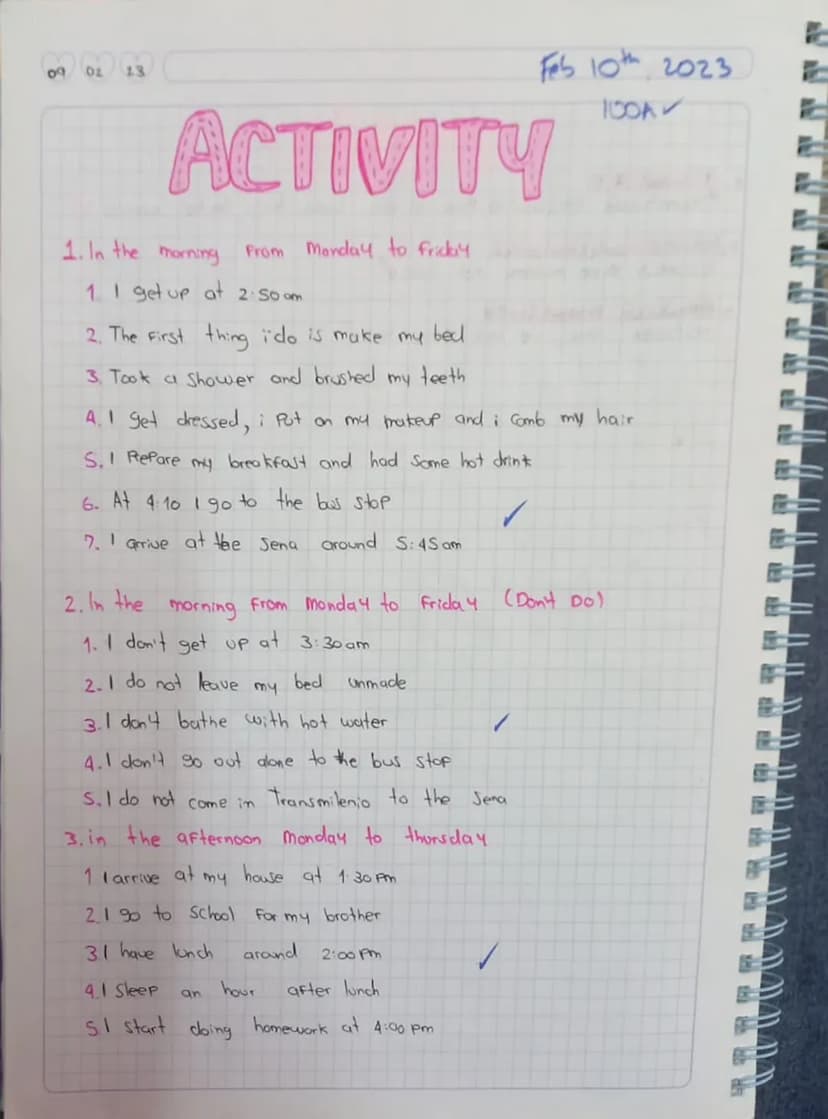 09 02 23
Feb 10th, 2023
100A✓
ACTIVITY
1. In the morning From Monday to Friday
1. I get up at 2:50 am
2. The First thing i do is make my bed
3. Took a shower and brushed my teeth
4. I get dressed, i Put on my makeup and i comb my hair
5. I Prepare my breakfast and had some hot drink
6. At 4:10 I go to the bus stop
7. I arrive at the Sena around 5:45 am
2. In the morning From Monday to Friday (Don't Do)
1. I don't get up at 3:30 am
2. I do not leave my bed unmade
3. I don't bathe with hot water
4. I don't go out alone to the bus stop
5. I do not come in Transmilenio to the Sena
3. in the afternoon Monday to thursday
1 I arrive at my house at 1:30 Pm
2. I go to School For my brother
3. I have lunch around 2:00 Pm
4. I sleep an hour after lunch
5 I start doing homework at 4:00 pm